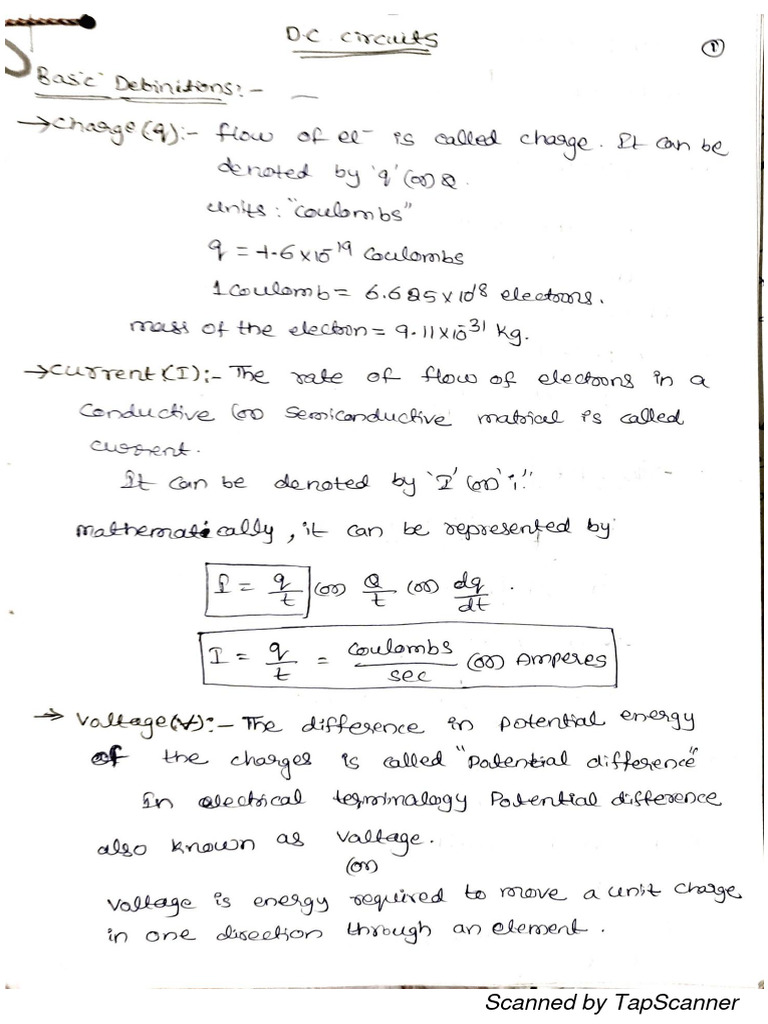 D.C circuits
1
Basic Definitions:-
→ charge(q):- flow of el⁻ is called charge. It can be
denoted by 'q' (or) Q.
units : "coulombs"
q = -1.6 x 10⁻¹⁹ Coulombs
1 coulomb = 6.625 x 10¹⁸ electrons.
mass of the electron = 9.11 x 10⁻³¹ kg.
→ current (I):- The rate of flow of electrons in a
Conductive (or) semiconductive matrical is called
current.
It can be denoted by 'I' (or) 'i'"
mathematically, it can be represented by
I = q/t (or) Q/t (or) dq/dt .
I = q/t = coulombs/sec (or) Amperes
→ Voltage(V):- The difference in potential energy
of the charges is called "potential difference"
In electrical termimalogy Potential difference
also known as voltage.
(or)
Voltage is energy required to move a unit charge
in one direction through an element.
Scanned by TapScanner